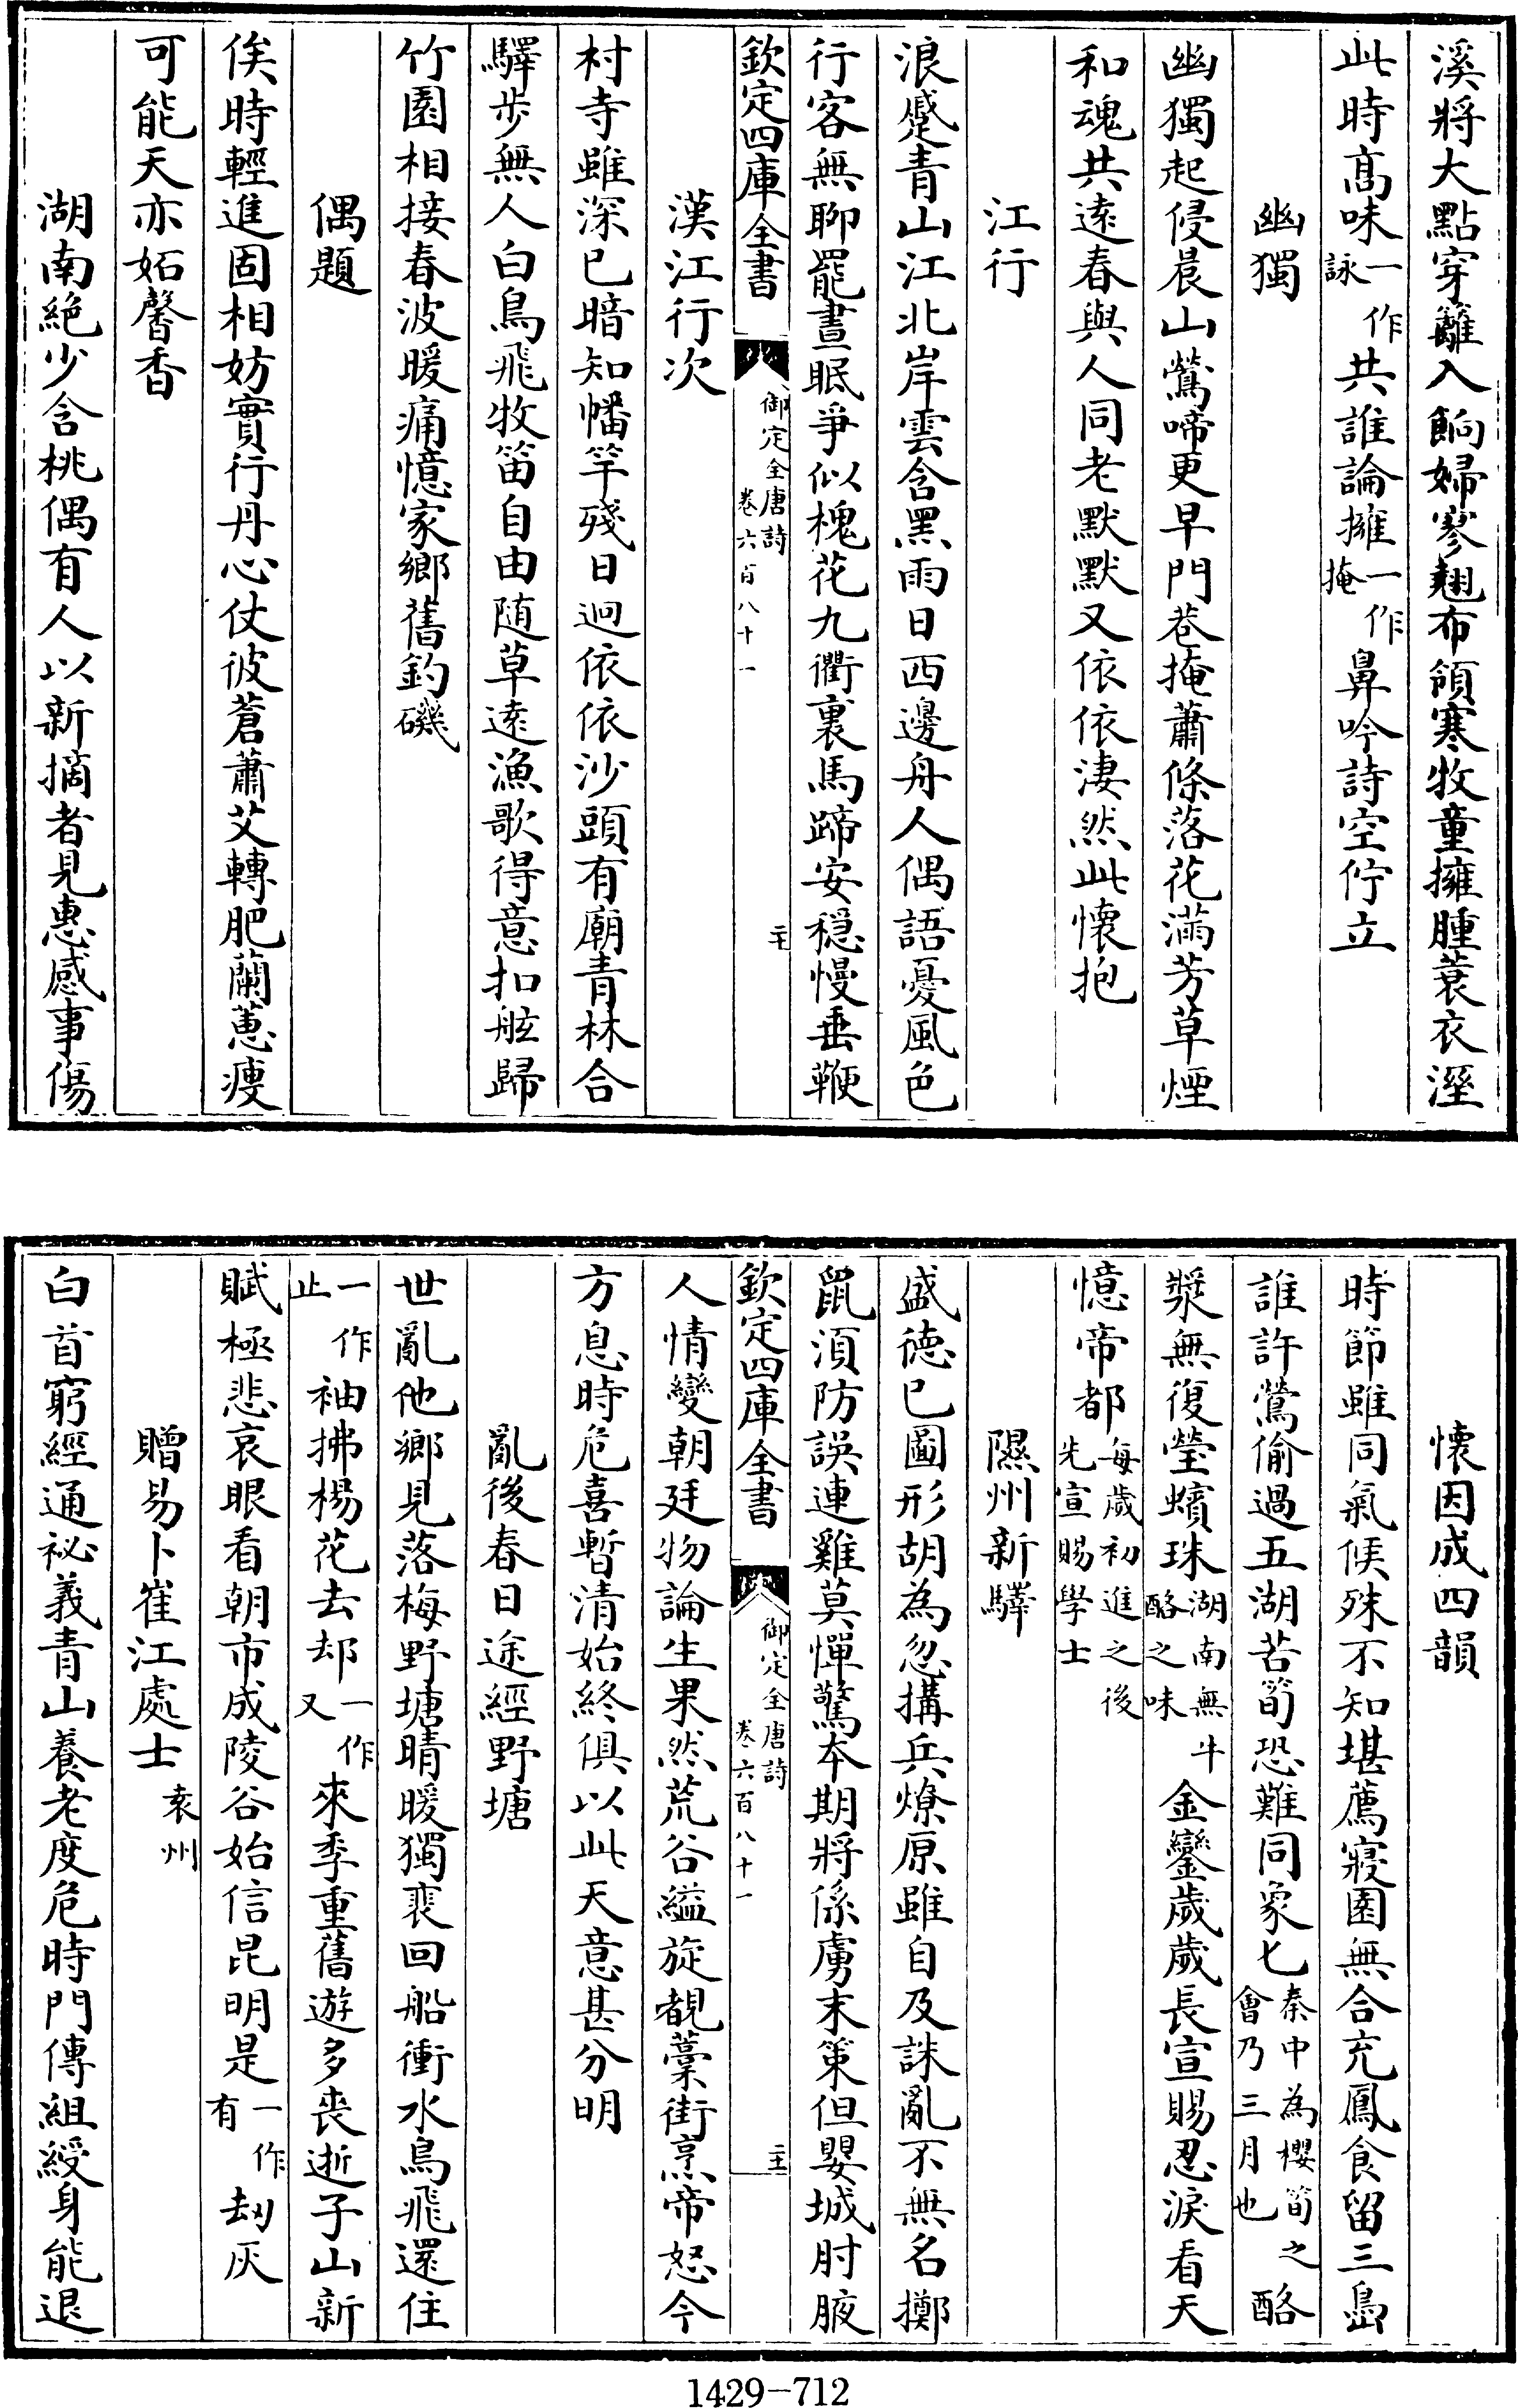 溪將大㸃穿籬入餉婦寥翹布領寒牧童擁腫蓑衣溼
此時髙味一作詠共誰論擁一作掩鼻吟詩空佇立
幽獨
幽獨起侵晨山鶯啼更早門巷掩蕭條落花滿芳草煙
和魂共遠春與人同老默默又依依淒然此懐抱
江行
浪蹙青山江北岸雲含黑雨日西邊舟人偶語憂風色
行客無聊罷晝眠爭似槐花九衢裏馬蹄安穏慢垂鞭
欽定四庫全書 御定全唐詩 卷六百八十一 二十
漢江行次
村寺雖深已暗知幡竿殘日迥依依沙頭有廟青林合
驛步無人白鳥飛牧笛自由隨草遠漁歌得意扣舷歸
竹園相接春波暖痛憶家鄉舊釣磯
偶題
俟時輕進固相妨實行丹心仗彼蒼蕭艾轉肥蘭蕙瘦
可能天亦妬馨香
湖南絶少含桃偶有人以新摘者見惠感事傷
懐因成四韻
時節雖同氣候殊不知堪薦寢園無合充鳳食留三島
誰許鶯偷過五湖苦筍恐難同象匕秦中為櫻筍之會乃三月也酪
漿無復瑩蠙珠湖南無牛酪之味金鑾歲歲長宣賜忍淚看天
憶帝都每歲初進之後先宣賜學士
隰州新驛
盛徳已圖形胡為忽搆兵燎原雖自及誅亂不無名擲
鼠須防誤連雞莫憚驚本期將係虜末策但嬰城肘腋
欽定四庫全書 御定全唐詩 卷六百八十一 二十一
人情變朝廷物論生果然荒谷縊旋覩藁街烹帝怒今
方息時危喜暫清始終俱以此天意甚分明
亂後春日途經野塘
世亂他鄉見落梅野塘晴暖獨裴回船衝水鳥飛還住
一作止袖拂楊花去却一作又來季重舊遊多喪逝子山新
賦極悲哀眼看朝市成陵谷始信昆明是一作有刼灰
贈易卜崔江處士袁州
白首窮經通祕義青山養老度危時門傳組綬身能退
1429-712